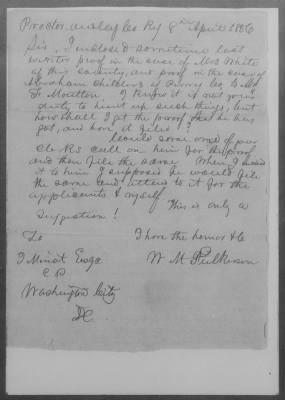 Proctor, Owsley Co Ky 8th April 1856
Sir, I inclosed sometime last
winter proof in the case of Mrs White
of this county, and proof in the case of
children of Perry Co to Mr
F Moulton. I know it is not your
duty to hunt up such things, but
how shall I get the proof that he has
got, and have it filed?
Could some one of your
Clerks call on him for the proof
and then file the same. When I mailed
it to him I supposed he would file
the same and attend to it for the
applicants & myself. This is only a
suggestion!
To I have the honor &c
J Minot Esqr W M Fulkerson
C P
Washington City
DC